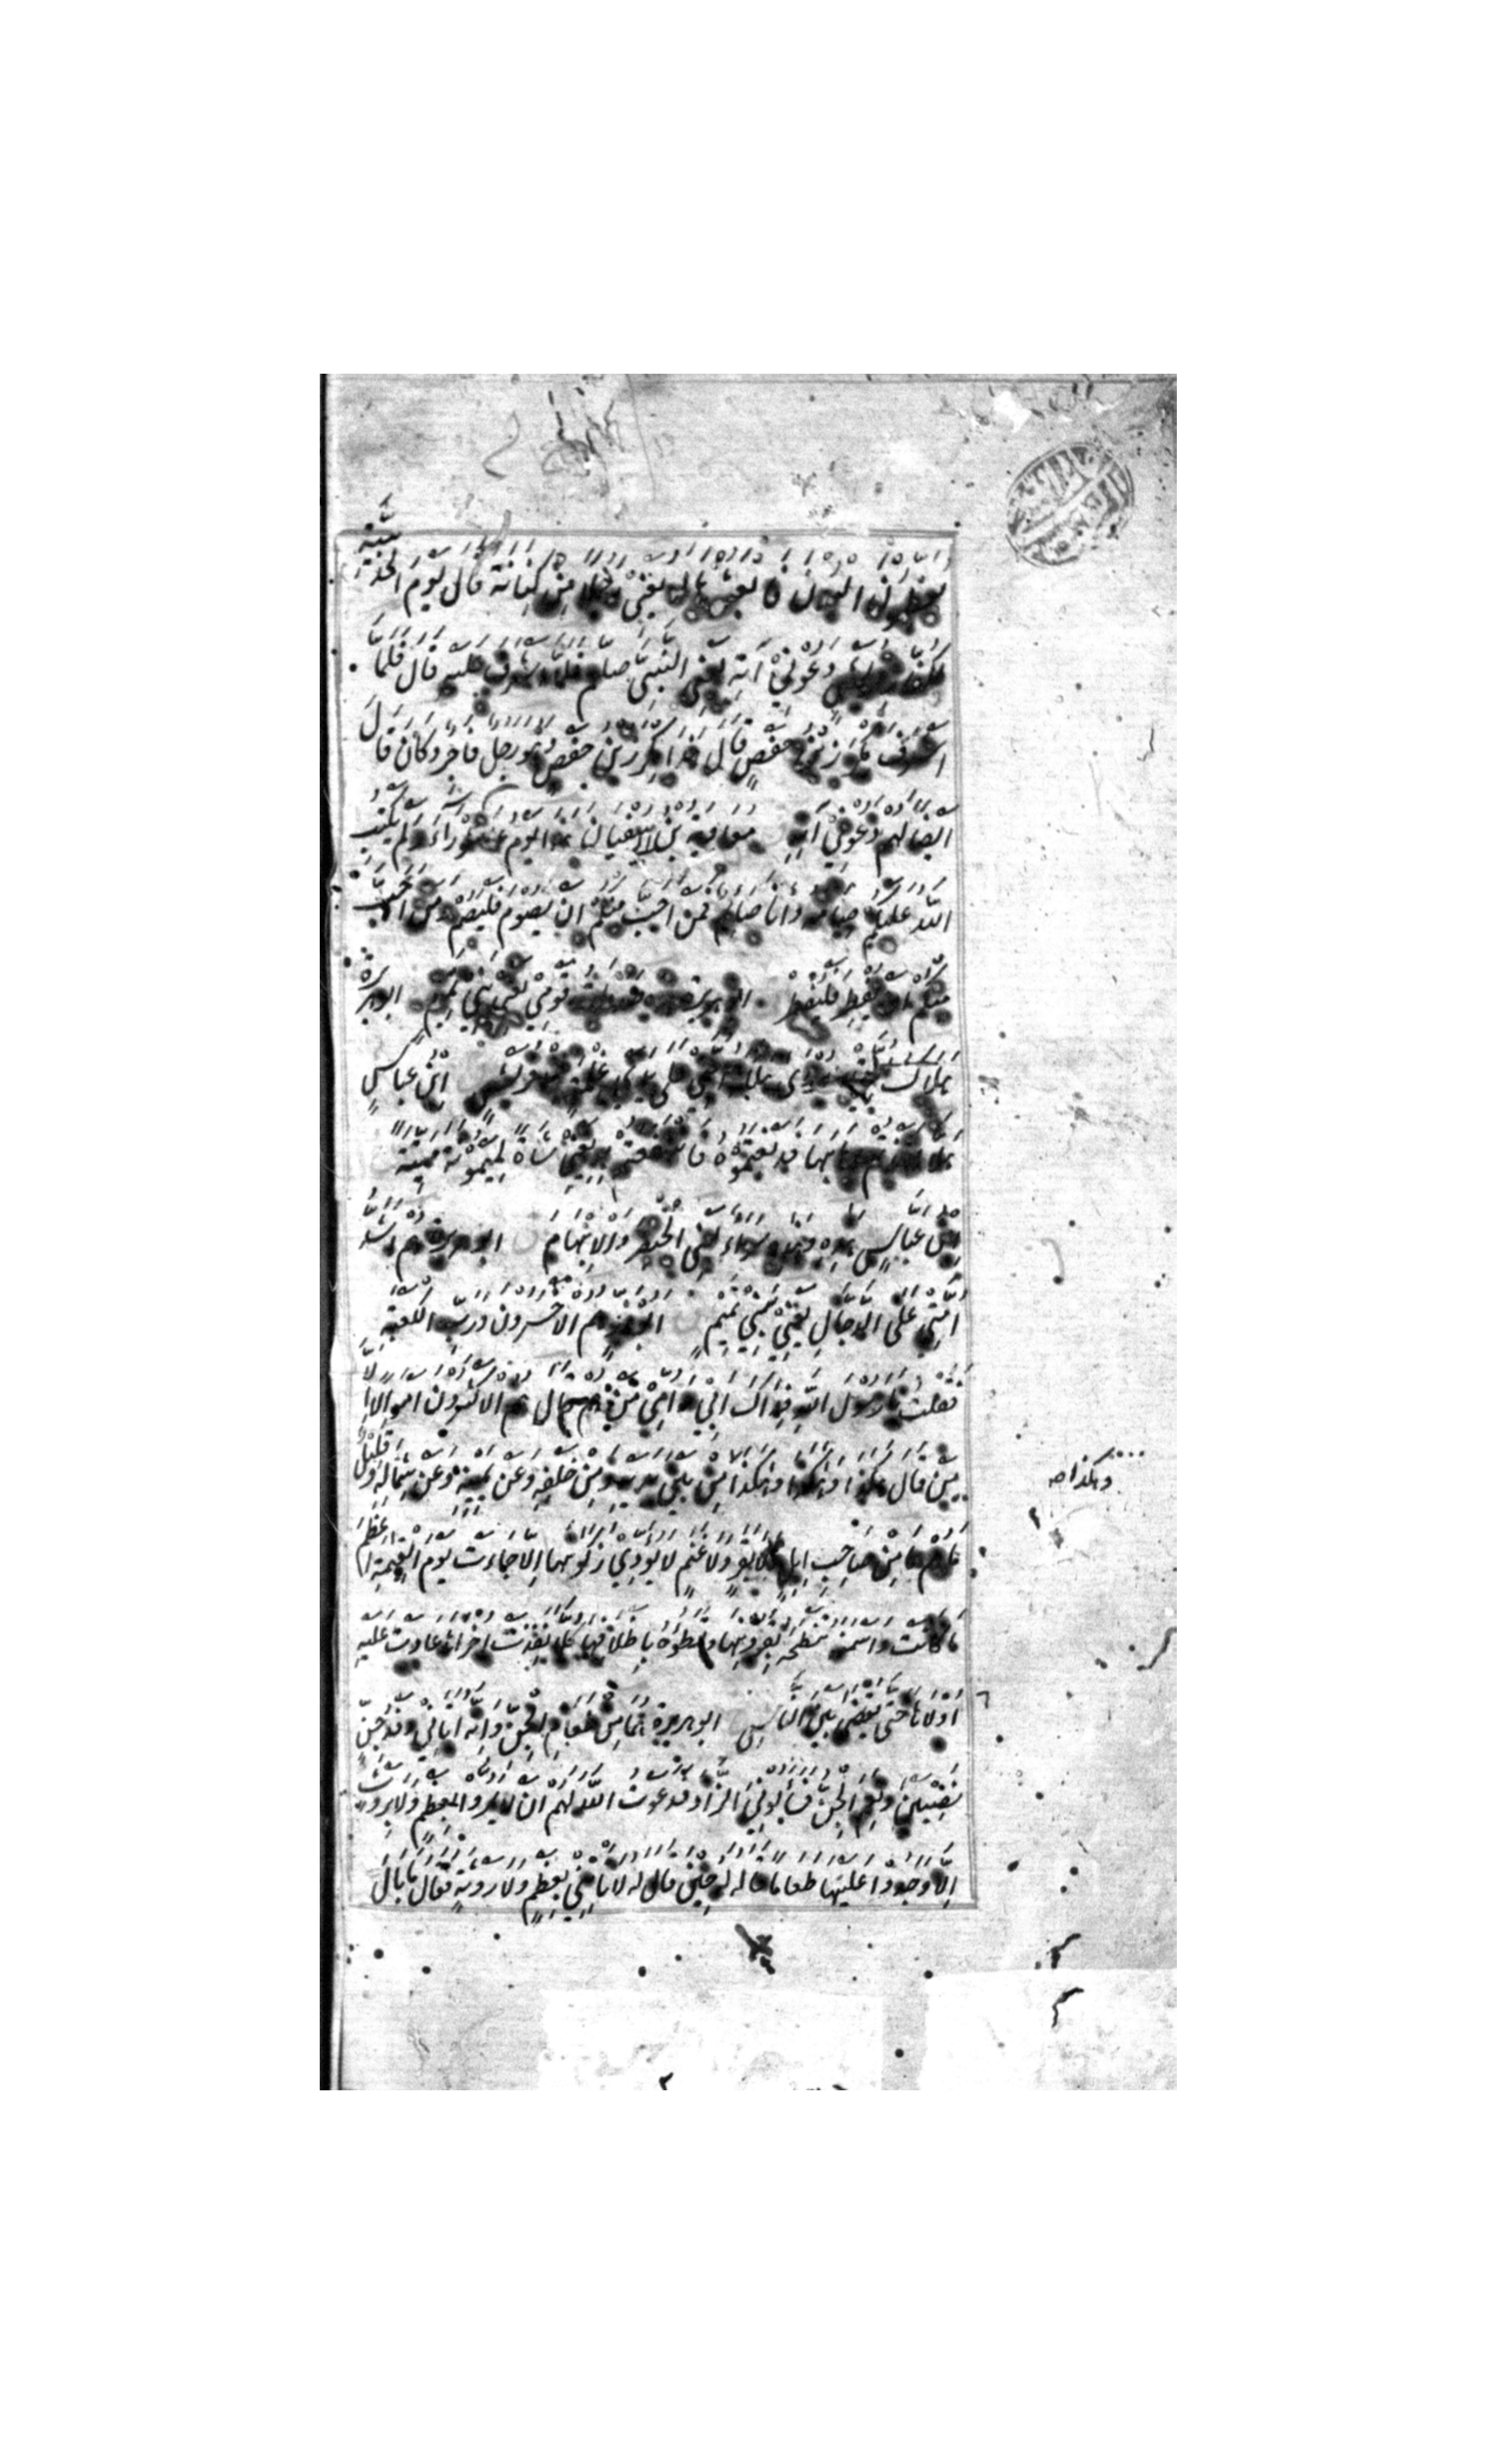 يعظمون البدن فابعثوها له يعني رجلا من كنانة قال يوم الحديبية
دعوني آته يعني النبي صلعم فلما اشرف عليه قال فلما
اشرف مكرز بن حفص قال هذا مكرز بن حفص وهو رجل فاجر وكان قال
ايضا لهم دعوني آته معاوية بن ابي سفيان هذا يوم عاشوراء ولم يكتب
الله عليكم صيامه وانا صائم فمن احب منكم ان يصوم فليصم ومن احب
منكم ان يفطر فليفطر ابو هريرة هذه صدقات قومي يعني بني تميم ابو هريرة
هلاك امتي على يدي غلمة من قريش ابن عباس
هلا اخذتم اهابها فدبغتموه فانتفعتم به يعني شاة لميمونة ميتة
ابن عباس هذه وهذه سواء يعني الخنصر والابهام ابو هريرة هم اشد
امتي على الدجال يعني بني تميم ابو ذر هم الاخسرون ورب الكعبة
فقلت يا رسول الله فداك ابي وامي من هم قال هم الاكثرون اموالا الا
من قال هكذا وهكذا وهكذا من بين يديه ومن خلفه وعن يمينه وعن شماله وقليل
وهكذا صح
ما هم ما من صاحب ابل ولا بقر ولا غنم لا يؤدي زكوتها الا جاءت يوم القيمة اعظم
ما كانت واسمنه تنطحه بقرونها وتطؤه باظلافها كلما نفدت اخراها عادت عليه
اولاها حتى يقضى بين الناس ابو هريرة هما من طعام الجن وانه اتاني وفد جن
نصيبين ونعم الجن فسألوني الزاد فدعوت الله لهم ان لا يمروا بعظم ولا بروثة
الا وجدوا عليها طعاما قاله له حين قال له لا تأتني بعظم ولا روثة فقال ما بال